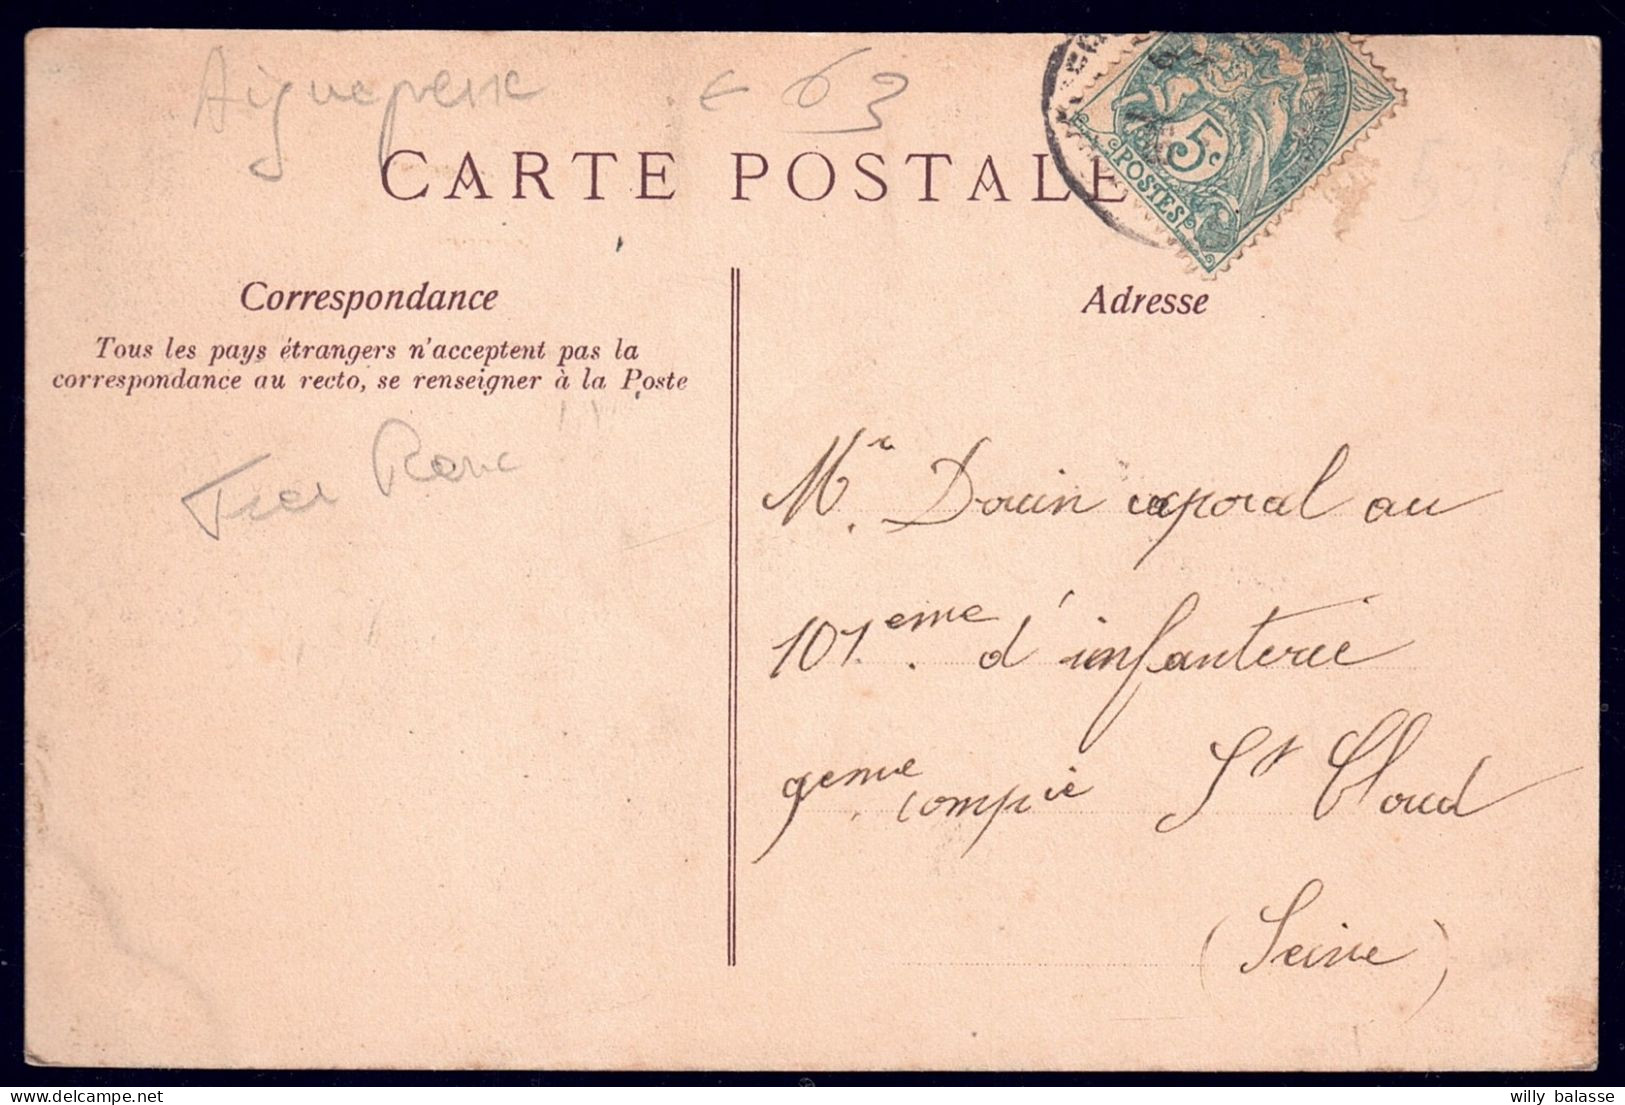 Aigueperse
63
CARTE POSTALE
5c
POSTES
Correspondance
Tous les pays étrangers n'acceptent pas la
correspondance au recto, se renseigner à la Poste
Adresse
Mr. Douin caporal au
101.eme d'infanterie
9eme compie St Cloud
(Seine)
willy balasse